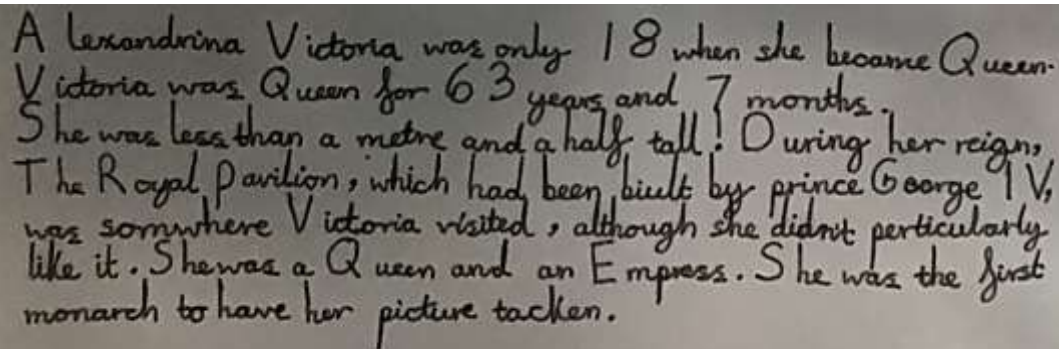 Alexandrina Victoria was only 18 when she became Queen.
Victoria was Queen for 63 years and 7 months.
She was less than a metre and a half tall! During her reign,
The Royal Pavilion, which had been biult by prince George IV,
was somwhere Victoria visited, although she didn't perticularly
like it. She was a Queen and an Empress. She was the first
monarch to have her picture tacken.